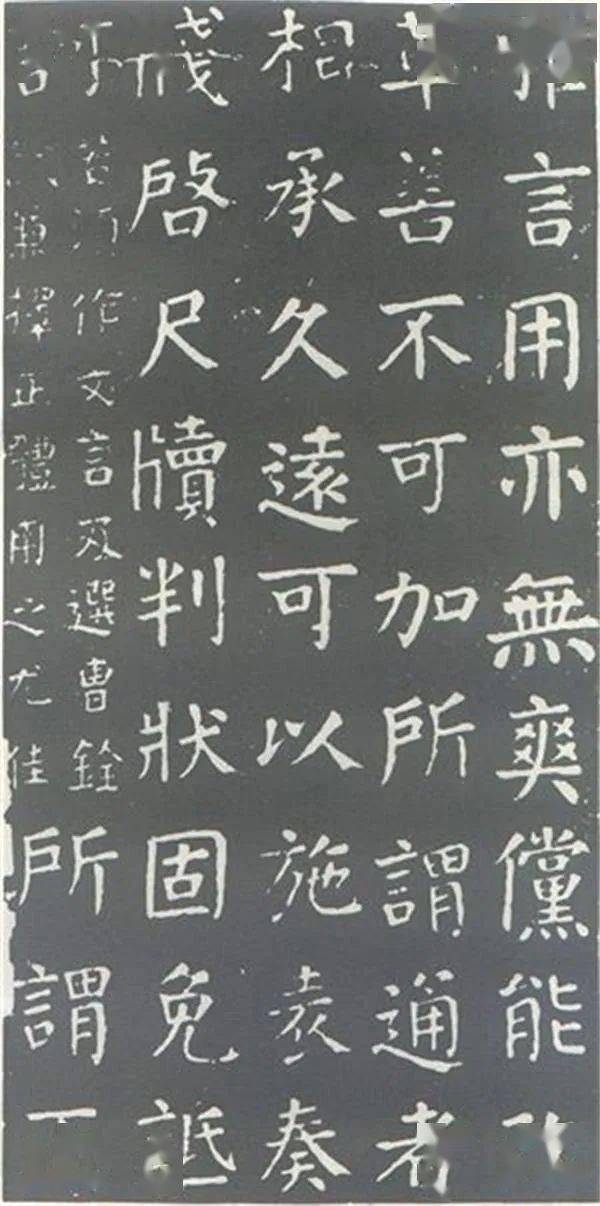 言用亦無爽儻能
革善不可加所謂通者
相承久遠可以施表奏
牋啓尺牘判狀固免詆
訶
若須作文言及選曹銓
試兼擇正體用之尤佳
所謂